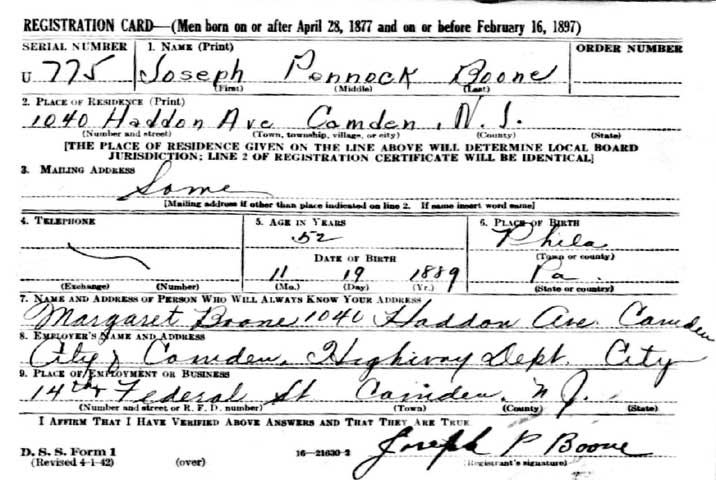 REGISTRATION CARD—(Men born on or after April 28, 1877 and on or before February 16, 1897)
SERIAL NUMBER 1. NAME (Print) ORDER NUMBER
U 775 Joseph Pennock Boone
(First) (Middle) (Last)
2. PLACE OF RESIDENCE (Print)
1040 Haddon Ave Camden, N.J.
(Number and street) (Town, township, village, or city) (County) (State)
[THE PLACE OF RESIDENCE GIVEN ON THE LINE ABOVE WILL DETERMINE LOCAL BOARD
JURISDICTION; LINE 2 OF REGISTRATION CERTIFICATE WILL BE IDENTICAL]
3. MAILING ADDRESS
Same
[Mailing address if other than place indicated on line 2. If same insert word same]
4. TELEPHONE 5. AGE IN YEARS 6. PLACE OF BIRTH
52 Phila
DATE OF BIRTH (Town or county)
11 19 1889 Pa.
(Exchange) (Number) (Mo.) (Day) (Yr.) (State or country)
7. NAME AND ADDRESS OF PERSON WHO WILL ALWAYS KNOW YOUR ADDRESS
Margaret Boone 1040 Haddon Ave. Camden
8. EMPLOYER'S NAME AND ADDRESS
City of Camden, Highway Dept. City
9. PLACE OF EMPLOYMENT OR BUSINESS
14th & Federal St Camden, N.J.
(Number and street or R. F. D. number) (Town) (County) (State)
I AFFIRM THAT I HAVE VERIFIED ABOVE ANSWERS AND THAT THEY ARE TRUE
Joseph P Boone
D. S. S. Form 1
(Revised 4-1-42) (over) 16—21630-2 (Registrant's signature)